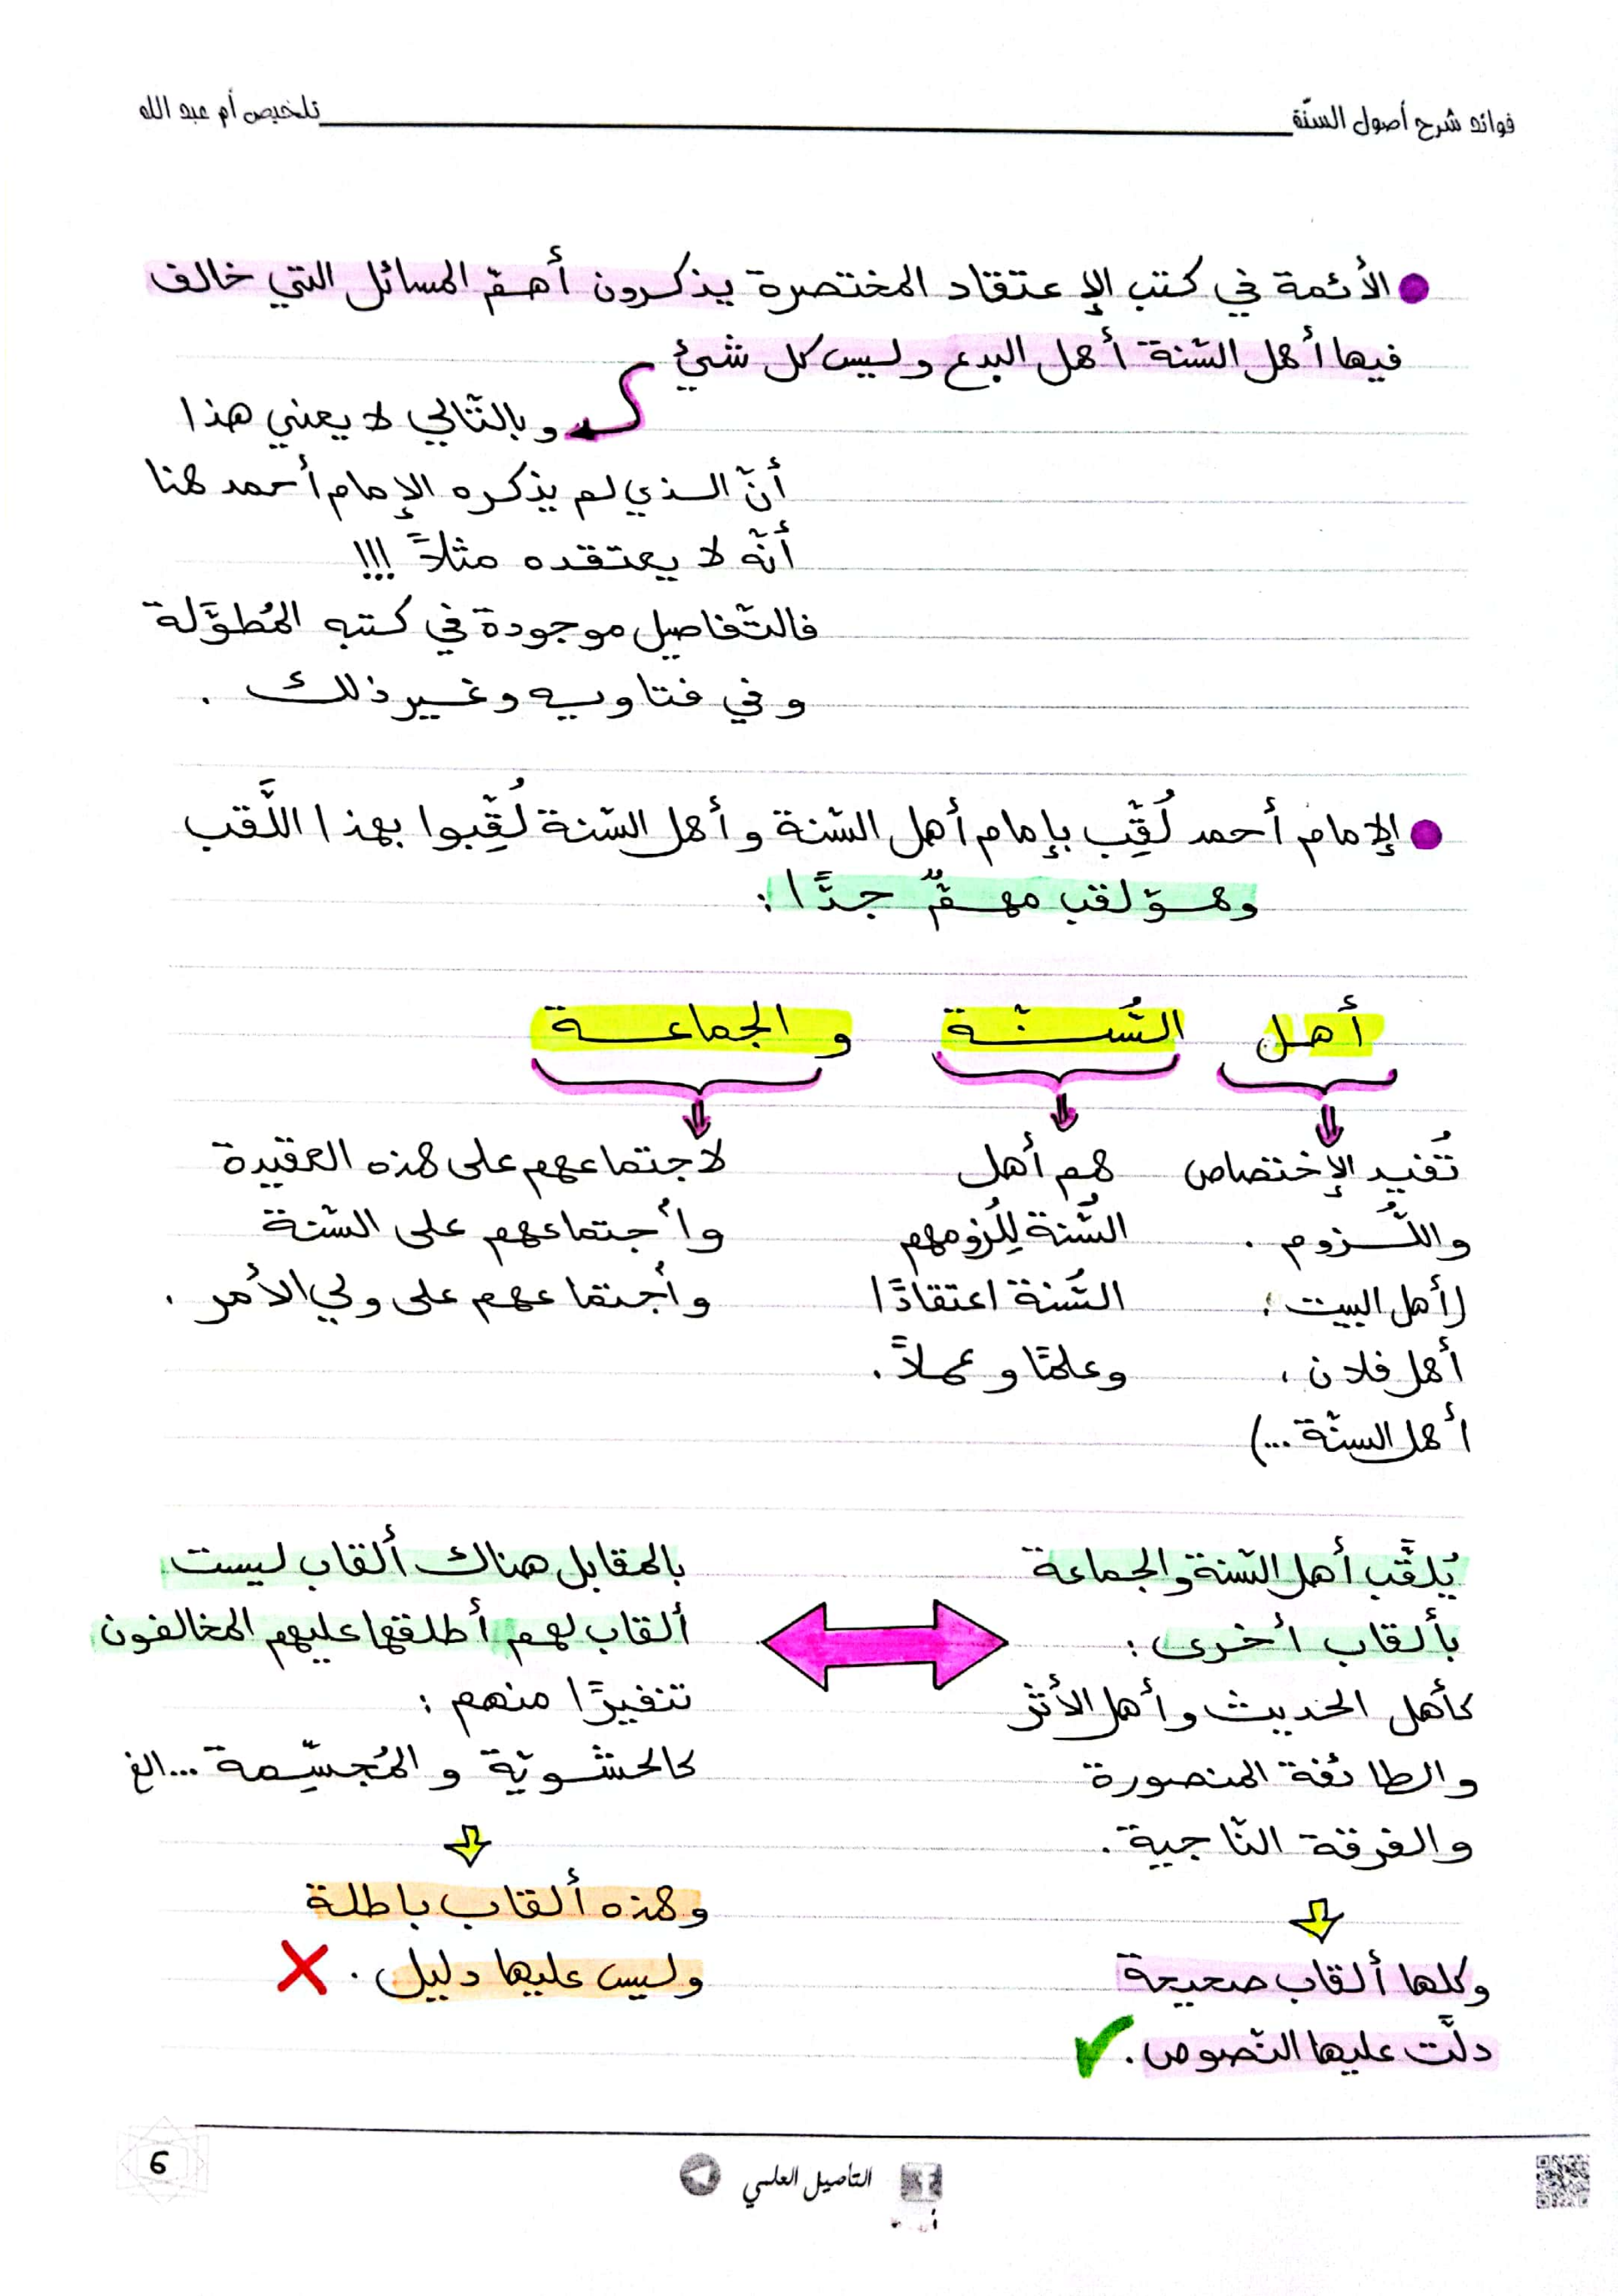 فوائد شرح أصول السنّة
تلخيص أم عبد الله
الأئمة في كتب الإعتقاد المختصرة يذكرون أهمّ المسائل التي خالف
فيها أهل السّنة أهل البدع وليس كل شيئ
وبالتّالي لا يعني هذا
أنّ الذي لم يذكره الإمام أحمد هنا
أنّه لا يعتقده مثلاً !!!
فالتّفاصيل موجودة في كتبه المُطوَّلة
وفي فتاويه وغير ذلك .
الإمام أحمد لُقِّب بإمام أهل السّنة وأهل السّنة لُقِّبوا بهذا اللَّقب
وهو لقب مهمٌّ جدًّا :
أهل السُّنّة والجماعة
تُفيد الإختصاص
واللُّزوم .
(أهل البيت ،
أهل فلان ،
أهل السنّة ...)
هم أهل
السُّنة لِلُزومهم
السُّنة اعتقادًا
وعلمًا وعملاً .
لاجتماعهم على هذه العقيدة
واُجتماعهم على السّنة
واُجتماعهم على ولي الأمر .
يُلقَّب أهل السّنة والجماعة
بألقاب أخرى :
كأهل الحديث وأهل الأثر
والطائفة المنصورة
والفرقة النّاجية .
وكلها ألقاب صحيحة
دلَّت عليها النّصوص .
بالمقابل هناك ألقاب ليست
ألقاب لهم أطلقها عليهم المخالفون
تنفيرًا منهم :
كالحشويّة والمُجسِّمة ...الخ
وهذه ألقاب باطلة
وليس عليها دليل .
التأصيل العلمي
6